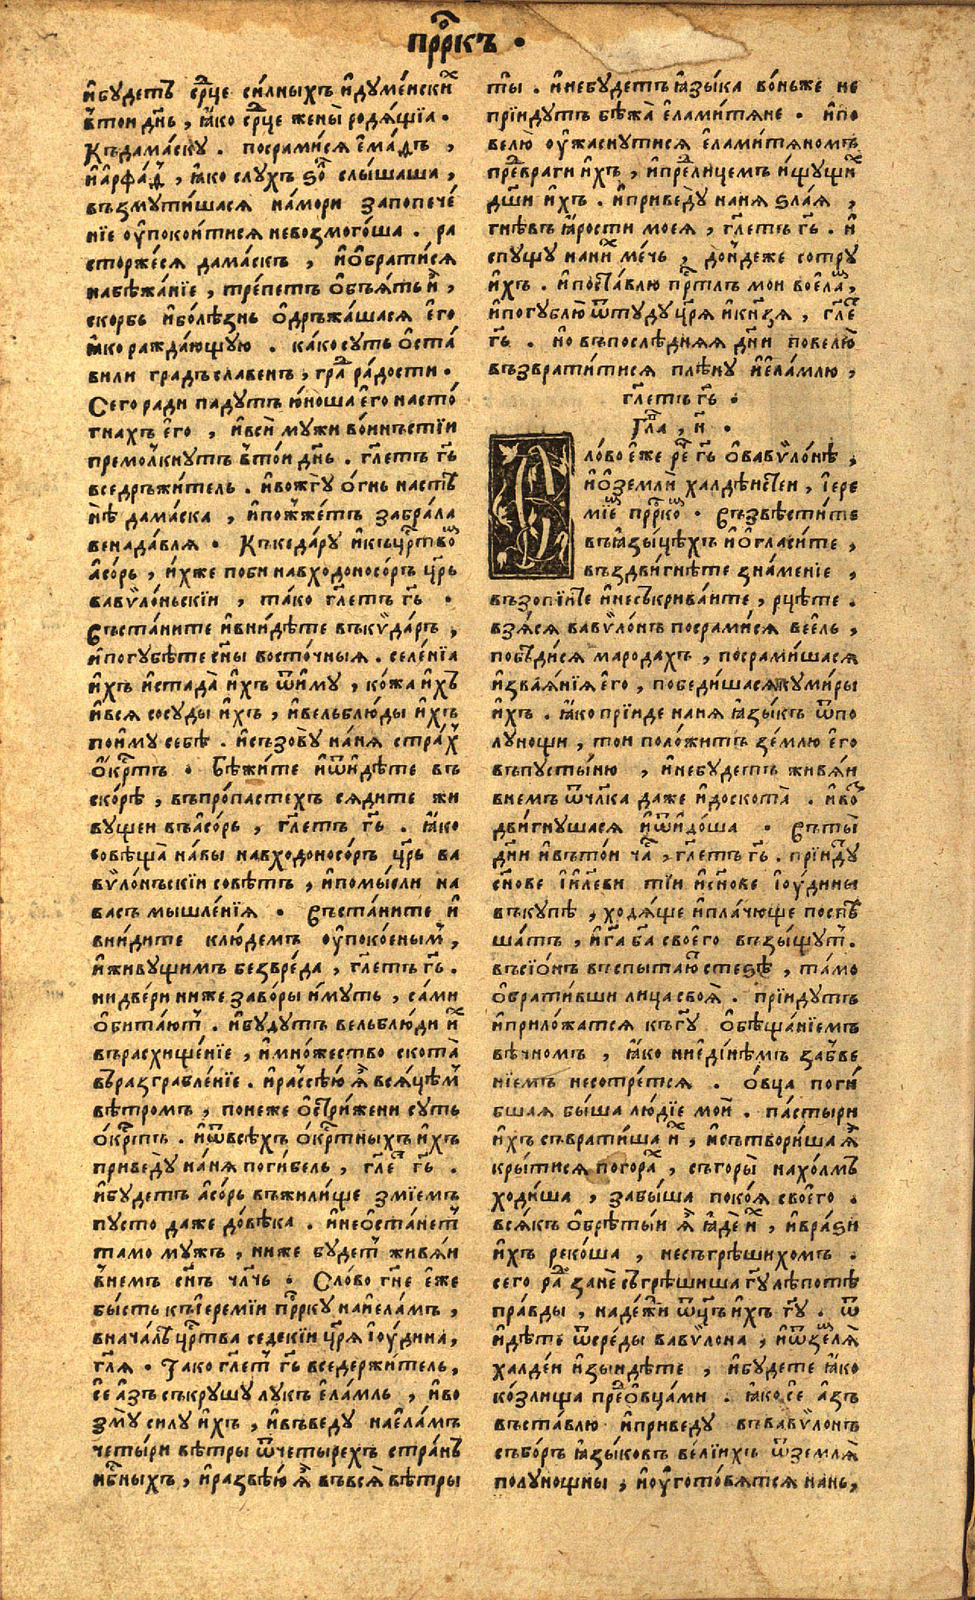 прⷪ҇ркъ ·
и҆будетъ ср҃це си́лныхъ и҆дꙋме́нскиⷯ
в҆тои дн҃ь , ꙗ҆́ко ср҃це жены̀ родѧ́щїа ·
Къдама́скꙋ . посрами́сѧ є҆ма́дъ ,
и҆а҆рфа́д , ꙗ҆́ко слꙋхъ ѕо̀л слы́шаша ,
възмꙋти́шасѧ на́мори запопече́
нїе оу҆покои́тисѧ невозмого́ша . ра
сторже́сѧ дама́скъ , и҆ѡ҆брати́сѧ
набѣжа́нїе , тре́петъ ѡ҆б̾ѧ́тъ и҆̀ ,
скорбь и҆болѣ́знь ѡ҆дръжа́шасѧ є҆го̀
ꙗ҆́ко ража́ющꙋю . ка́ко сꙋть ѡ҆ста́
вили градъ славенъ , граⷣ ра́дости ·
Сего ради падꙋтъ ю҆́ноша є҆го̀ насто́
гнахъ є҆го̀ , и҆всѝ мꙋжи во́инъстїи
премо́лкнꙋтъ в҆то́и дн҃ь . гл҃етъ гь҃
вседръжи́тель . и҆вожгꙋ̀ ѻ҆́гнь настѣ
нѣ̀ дама́ска , и҆пожже́тъ забра́ла
венада́влѧ · Къкеда́рꙋ и҆къцрⷭ҇твоⷨ
а҆со́рь , и҆́хже поби навходоносо́ръ цр҃ь
вавѷло́ньскїи , та́ко гл҃етъ гь҃ ·
Съста́ните и҆вни́дѣте въкѷда́ръ ,
и҆погꙋбѣте сн҃ы восто́чныѧ . селе́нїа
и҆́хъ и҆стада̀ и҆́хъ ѿи҆мꙋ , ко́жа и҆́хъ
и҆всѧ сосꙋды и҆́хъ , и҆вельблю́ды и҆́хъ
пои҆мꙋ себѣ . и҆съзовꙋ̀ на́нѧ страⷯ
ѡ҆́крⷭ҇тъ · Бѣжи́те и҆ѿи҆дѣ́те въ
ско́рѣ , въпро́пастехъ сѧ́дите жи
вꙋщеи въа҆со́рь , гл҃етъ гь҃ . ꙗ҆́ко
совѣща̀ на́вы навходоносо́ръ цр҃ь ва
вѷло́нъскїи совѣ́тъ , и҆помы́сли на
васъ мышле́нїѧ · Съста́ните и҆
вни́дите клю́демъ оу҆поко́еныⷨ ,
и҆живꙋщимъ безвре́да , гл҃етъ гь҃ .
ни две́ри ниже заво́ры и҆мꙋть , са́ми
ѡ҆бита́ютⷮ . и҆бꙋдꙋтъ вельблю́ди и҆ⷯ
върасхище́нїе , и҆мно́жество скота̀
въразграбле́нїе . и҆расⷭ҇ѣ́ю ѧ҆̀ всѧцѣⷨ
вѣ́тромъ , понеже ѡ҆стри́жени сꙋть
ѡ҆́крⷭ҇тъ . и҆ѿвсѣхъ ѻ҆́крⷭ҇тныхъ и҆́хъ
приведꙋ̀ на́нѧ поги́бель , гл҃еⷮ гь҃ .
и҆бꙋдетъ а҆со́рь въжили́ще змїемъ
пꙋсто даже до́вѣка . и҆неѡ҆ста́неⷮ
тамо мꙋжъ , ниже бꙋдеⷮ живѧ́и
в҆немъ сн҃ъ чл҃чь · Сло́во гн҃е є҆́же
бы́сть къі҆ереми́и прⷪ҇ркꙋ наи҆ела́мъ ,
внача́лѣ црⷭ҇тва седеки́и цр҃ѧ і҆ꙋ́дина ,
гл҃ѧ · Тако гл҃еⷮ гь҃ вседержи́тель ,
сѐ а҆́зъ съкрꙋшꙋ лꙋкъ є҆ла́мль , и҆во
змꙋ̀ силꙋ и҆́хъ , и҆въведꙋ нає҆ла́мъ
четы́ри вѣ́тры ѿчетырехъ стра́нъ
нбⷭ҇ныхъ , и҆развѣ́ю ѧ҆̀ въвсѧ̀ вѣ́тры
ты̀ . и҆небꙋдетъ ꙗ҆зы́ка во́ньже не
прїидꙋтъ бѣжа̀ є҆лами́тѧне · и҆по
велю̀ оу҆жаснꙋтисѧ є҆ламитѧномъ
преⷣвраги и҆́хъ , и҆преⷣлицемъ и҆щꙋщиⷯ
дш҃и и҆́хъ . и҆приведꙋ̀ нанѧ ѕла́ѧ ,
гнѣвъ ꙗ҆́рости моеѧ , гл҃етъ гь҃ . и҆
спꙋщꙋ наниⷯ ме́чь , до́йдеже сотрꙋ
и҆́хъ . и҆поста́влю прⷭ҇тлъ мои воє҆ла́ⷨ ,
и҆погꙋблю̀ ѿтꙋдꙋ цр҃ѧ и҆кн҃зѧ , гл҃еⷮ
гь҃ . но въпослѣ́днѧѧ дн҃и повелю̀
възврати́тисѧ плѣ́нꙋ и҆є҆ла́млю ,
гл҃етъ гь҃ ·
Глⷡ҇а , н҃ ·
Сло́во є҆́же реⷱ҇ гь҃ ѡ҆вавѷло́нѣ ,
и҆ѡ҆земли̂ халдѣ́нстеи , і҆ере
мі́еⷨ прⷪ҇ркоⷨ · Съзвѣстите
въꙗ҆зы́цѣхъ и҆ѡ҆гласи́те ,
въздви́гнѣте зна́менїе ,
възопі́ите и҆несъкрива́ите , рцѣ́те .
взѧ́сѧ вавѷло́нъ посрами́сѧ веи҆́ль ,
побѣди́сѧ мародахъ , посрами́шасѧ
и҆зваѧ́нїѧ є҆го̀ , победи́шасѧкꙋми́ры
и҆́хъ . ꙗ҆́ко прїиде нанѧ ꙗ҆зы́къ ѿпо
лꙋнощи , тои поло́житъ зе́млю є҆го̀
въпꙋсты́ню , и҆небꙋдетъ живѧ́и
внемъ ѿчл҃ка даже и҆доскота̀ . и҆воⷥ
дви́гнꙋшасѧ и҆ѿи҆до́ша · Съты̀
дн҃и и҆въто́и чаⷭ҇ , гл҃етъ гь҃ . прїи́дꙋⷮ
сн҃ове і҆и҃леви тїи и҆сн҃ове і҆ꙋ́дины
въкꙋпѣ , ходѧ́ще и҆пла́чюще поспѣ
ша́тъ , и҆га҃ ба҃ своего̀ възы́щꙋⷮ .
въсїо́нъ въспыта́юⷮ стеѕѣ̀ , та́мо
ѡ҆брати́вши лица своѧ̀ . прїидꙋтъ
и҆прило́жатсѧ къгꙋ҃ ѡ҆бѣща́нїемъ
вѣ́чномъ , ꙗ҆́ко ниеди́нѣмъ забве
нїемъ несотре́тсѧ . ѻ҆́вца поги́
бшаѧ бы́ша лю́дїе мои̂ . па́стыри
и҆́хъ съврати́ша и҆ⷯ , и҆сътвори́ша ѧ҆̀
кры́тисѧ погораⷯ , съгоры̀ нахо́лмъ
ходи́ша , забы́ша поко́ѧ своего̀ .
всѧ́къ ѡ҆брѣты́и ѧ҆̀ ꙗ҆дѐ и҆ⷯ , и҆враѕи
и҆́хъ реко́ша , несъгрѣши́хомъ .
сего раⷣ занѐ съгрѣши́ша гꙋ҃ лѣ́потѣ
пра́вды , наде́жи ѿц҃ъ и҆́хъ гꙋ҃ . ѿ
и҆дѣ́те ѿсреды вавѷло́на , и҆ѿзелѧ̀
халде́и и҆зыидѣ́те , и҆бꙋдете ꙗ҆́ко
ко́злища преⷣѻ҆вца́ми . ꙗ҆́ко сѐ а҆́зъ
въста́влю и҆приведꙋ въвавѷло́нъ
събо́ръ ꙗ҆зы́ковъ ве́лїихъ ѿземлѧ̀
полꙋнощны , и҆оу҆гото́вѧтсѧ нань ,